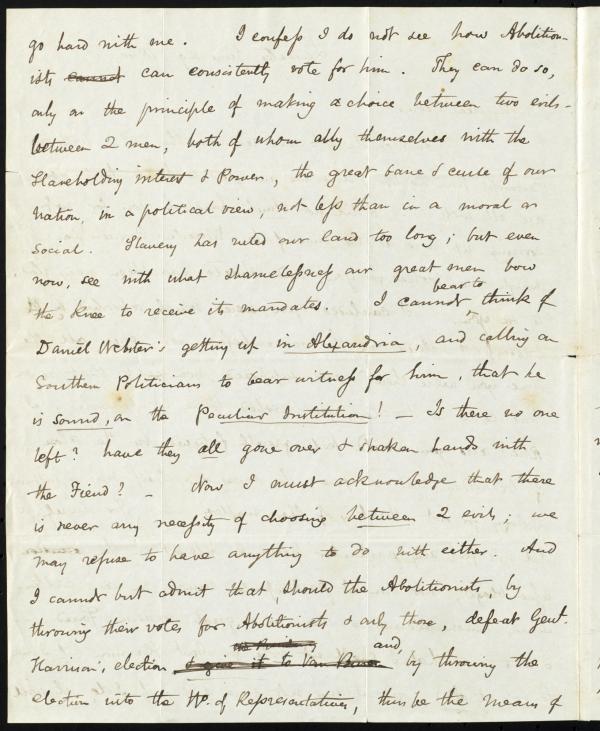 go hard with me. I confess I do not see how Abolition-
ists cannot can consistently vote for him. They can do so,
only on the principle of making a choice between two evils -
between 2 men, both of whom ally themselves with the
Slaveholding interest & Power, the great bane & curse of our
nation, in a political view, not less than in a moral or
social. Slavery has ruled our land too long; but even
now, see with what shamelessness our great men bow
bear to
the knee to receive its mandates. I cannot ^ think of
Daniel Webster's getting up in Alexandria, and calling on
Southern Politicians to bear witness for him, that he
is sound, on the Peculiar Institution! - Is there no one
left? have they all gone over & shaken hands with
the Fiend? - Now I must acknowledge that there
is never any necessity of choosing between 2 evils; we
may refuse to have anything to do with either. And
I cannot but admit that, should the Abolitionists, by
throwing their votes for Abolitionists & only those, defeat Genl.
the Presidency and,
Harrison's election & give it to Van Buren by throwing the
election into the Ho. of Representatives, thus be the means of